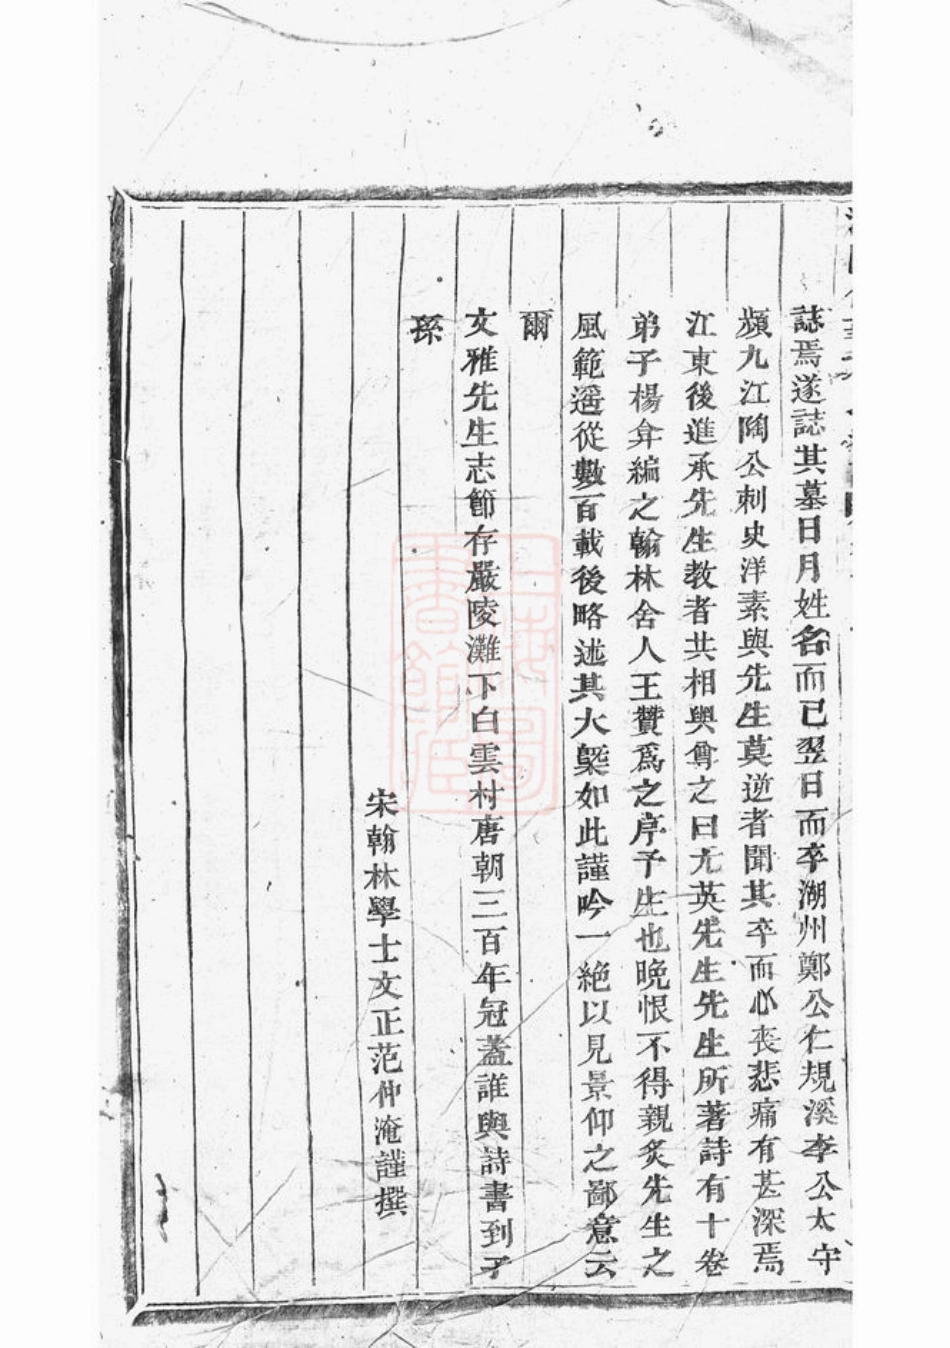 誌焉遂誌其墓日月姓名而已翌日而卒湖州鄭公仁規溪李公太守
頻九江陶公刺史洋素與先生莫逆者聞其卒而心喪悲痛有甚深焉
江東後進承先生教者共相與尊之曰尤英先生先生所著詩有十卷
弟子楊弇編之翰林舍人王贊爲之序予生也晚恨不得親炙先生之
風範遥從數百載後略述其大槩如此謹吟一絶以見景仰之鄙意云
爾
文雅先生志節存嚴陵灘下白雲村唐朝三百年冠蓋誰與詩書到子
孫
宋翰林學士文正范仲淹謹撰